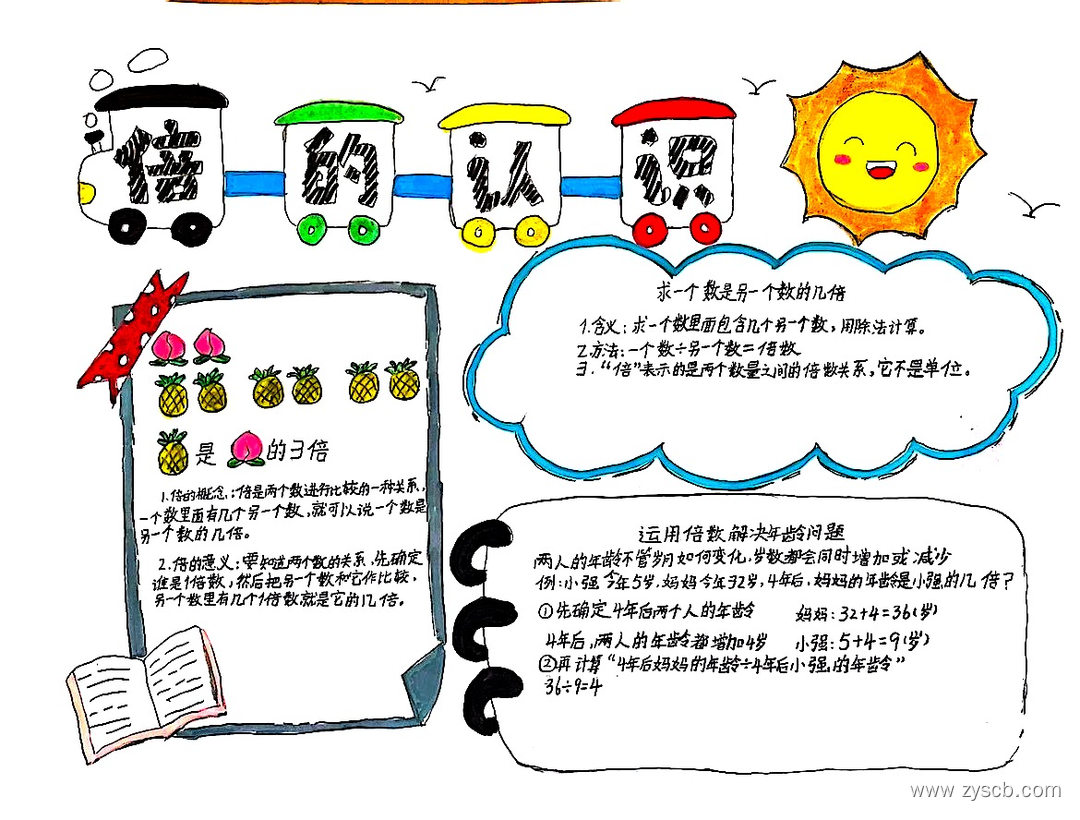 倍的认识
是 的3倍
1.倍的概念:倍是两个数进行比较的一种关系,
一个数里面有几个另一个数,就可以说一个数是
另一个数的几倍。
2.倍的意义:要知道两个数的关系,先确定
谁是1倍数,然后把另一个数和它作比较,
另一个数里有几个1倍数就是它的几倍。
求一个数是另一个数的几倍
1.含义:求一个数里面包含几个另一个数,用除法计算。
2.方法:一个数÷另一个数=倍数
3."倍"表示的是两个数量之间的倍数关系,它不是单位。
运用倍数解决年龄问题
两人的年龄不管岁月如何变化,岁数都会同时增加或减少
例:小强今年5岁,妈妈今年32岁,4年后,妈妈的年龄是小强的几倍?
①先确定4年后两个人的年龄 妈妈:32+4=36(岁)
4年后,两人的年龄都增加4岁 小强:5+4=9(岁)
②再计算"4年后妈妈的年龄÷4年后小强的年龄"
36÷9=4
www.zyscb.com